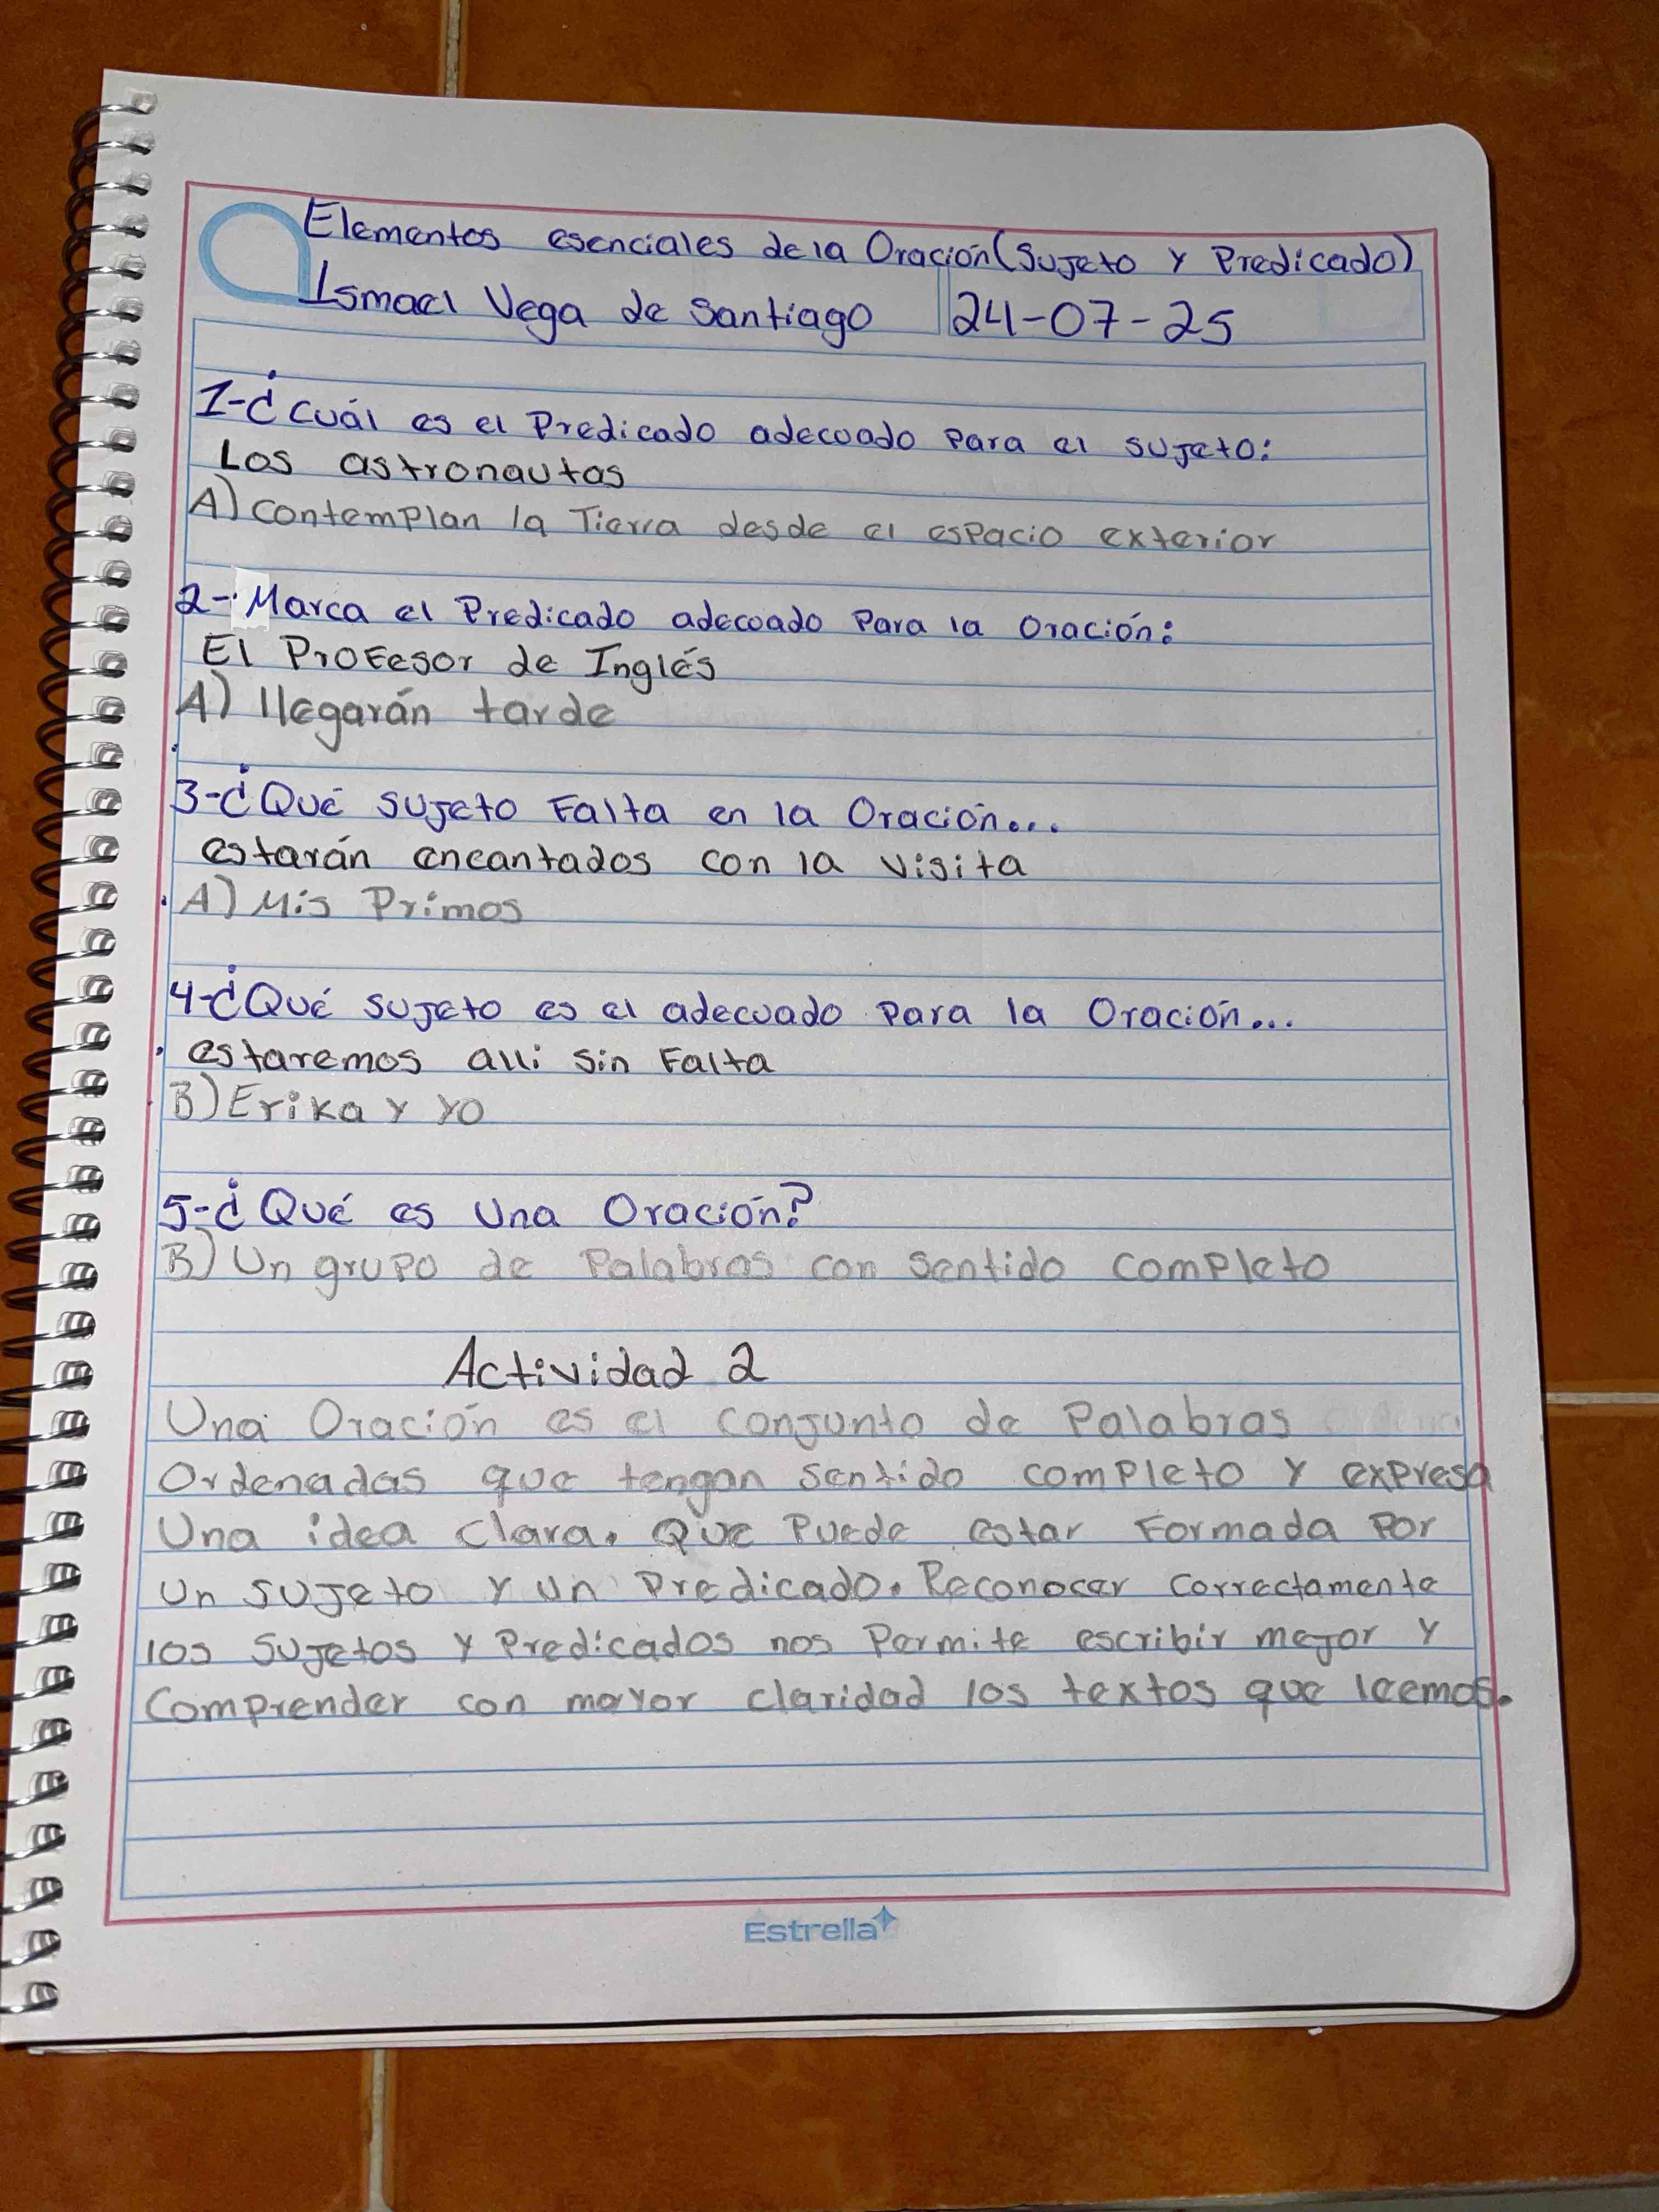 Elementos esenciales de la Oración (Sujeto y Predicado)
Ismael Vega de Santiago 24-07-25
1-¿Cuál es el Predicado adecuado para el sujeto:
Los astronautas
A) Contemplan la Tierra desde el espacio exterior
2-. Marca el Predicado adecuado Para la Oración:
El Profesor de Inglés
A) llegarán tarde
3-¿Qué sujeto Falta en la Oración...
estarán encantados con la visita
A) Mis Primos
4-¿Qué sujeto es el adecuado para la Oración...
estaremos alli sin Falta
B) Erika y yo
5-¿Qué es una Oración?
B) Un grupo de Palabras con sentido completo
Actividad 2
Una Oración es el conjunto de Palabras
Ordenadas que tengan sentido completo y expresa
Una idea clara. Que Puede estar Formada Por
un sujeto y un Predicado. Reconocer correctamente
los sujetos y Predicados nos Permite escribir mejor y
Comprender con mayor claridad los textos que leemos.
Estrella